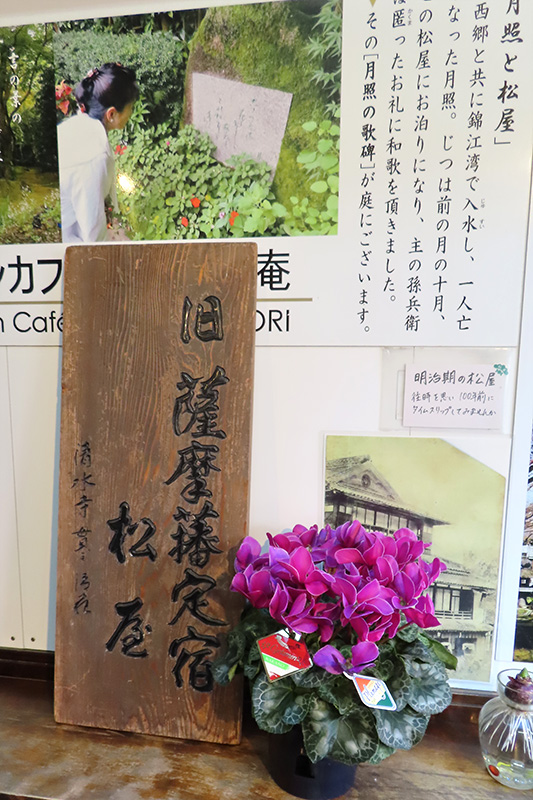 月照と松屋」
西郷と共に錦江湾で入水し、一人亡
なった月照。じつは前の月の十月、
の松屋にお泊りになり、主の孫兵衛
は匿ったお礼に和歌を頂きました。
その[月照の歌碑]が庭にございます。
ンカフ
庵
Café
ORi
旧
薩摩藩定宿
松屋
清水寺貫主
明治期の松屋
往時を思い 100年前に
タイムスリップしてみませんか